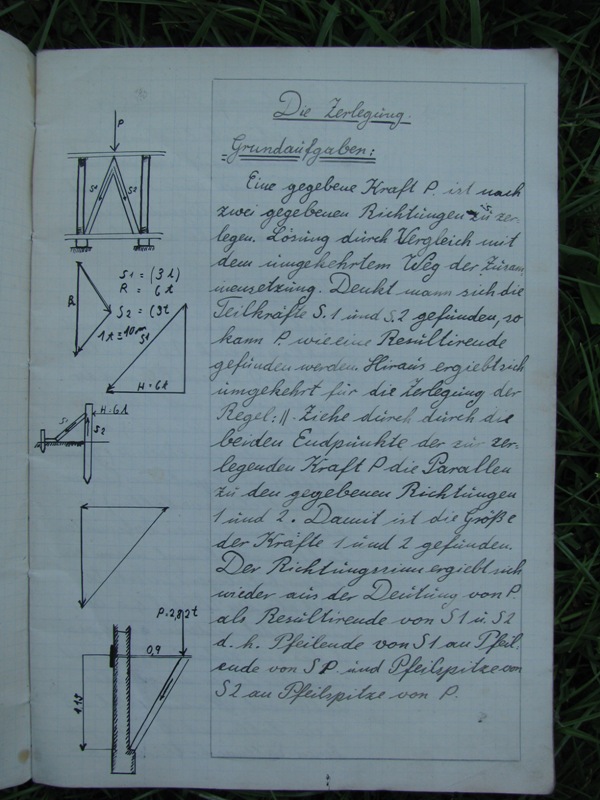 Die Zerlegung.
Grundaufgaben:
Eine gegebene Kraft P. ist nach
zwei gegebenen Richtungen zu zer-
legen. Lösung durch Vergleich mit
dem umgekehrtem Weg der Zusam
mensetzung. Denkt mann sich die
Teilkräfte S.1 und S.2 gefunden, so
kann P wie eine Resultirende
gefunden werden. Hiraus ergiebt sich
umgekehrt für die Zerlegung der
Regel: || Ziehe durch durch die
beiden Endpunkte der zur zer-
legenden Kraft P die Parallen
zu den gegebenen Richtungen
1 und 2. Damit ist die Größe
der Kräfte 1 und 2 gefunden.
Der Richtungssinn ergiebt sich
wieder aus der Deutung von P.
als Resultirende von S1 u. S2
d. h. Pfeilende von S1 an Pfeil.
ende von SP. und Pfeilspitze von
S2 an Pfeilspitze von P.
P
S1 S2
S1 = (3t)
R = 6t
R
S2 = (3t
1t = 10m
S1
H=6t
H=6t
S1
S2
P.2,82t
0,9